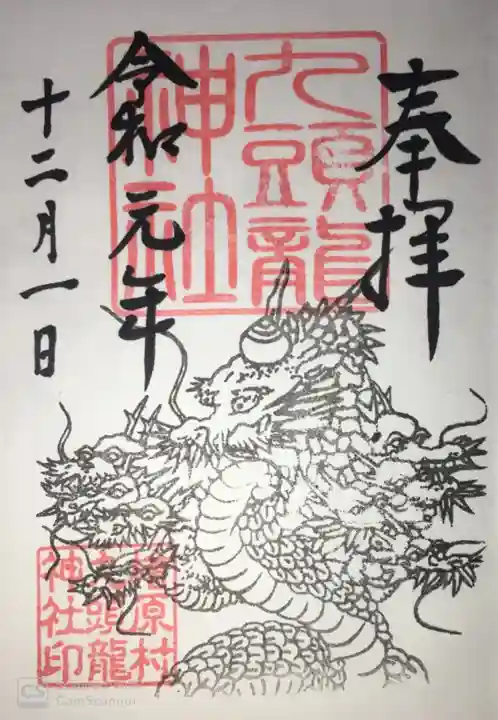 奉拝
九頭龍
神社
令和元年
十二月一日
原村
頭龍
神社印
CS CamScanner